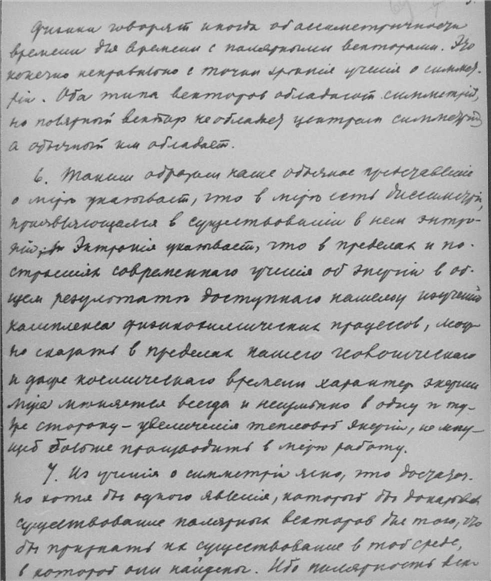 Физики говорят иногда об ассиметричности
времени для времени с полярными векторами. Это
конечно неправильно с точки зрения учения о симмет-
рiи. Оба типа векторов обладают симметрiей,
но полярный вектор не обладает центром симметрiи,
а обычный им обладает.
6. Таким образом наше обычное представленiе
о мiре указывает, что в мiре есть диссимметрiя,
проявляющаяся в существовании в нем энтро-
пiи. Энтропiя указывает, что в пределах и по-
строенiях современного ученiя об энергiи в об-
щем результате доступнаго нашему изученiю
комплекса физикохимических процессов, мож-
но сказать в пределах нашего геологическаго
и даже космическаго времени характер энергии
мiра меняется всегда и неизменно в одну и ту-
же сторону - увеличенiя тепловой энергiи, не могу-
щей больше производить в мiре работу.
7. Из ученiя о симметрiи ясно, что достаточ-
но хотя бы одного явленiя, которое бы доказывало
существование полярных векторов для того, что
бы признать их существование в той среде,
в которой они найдены. Ибо полярность